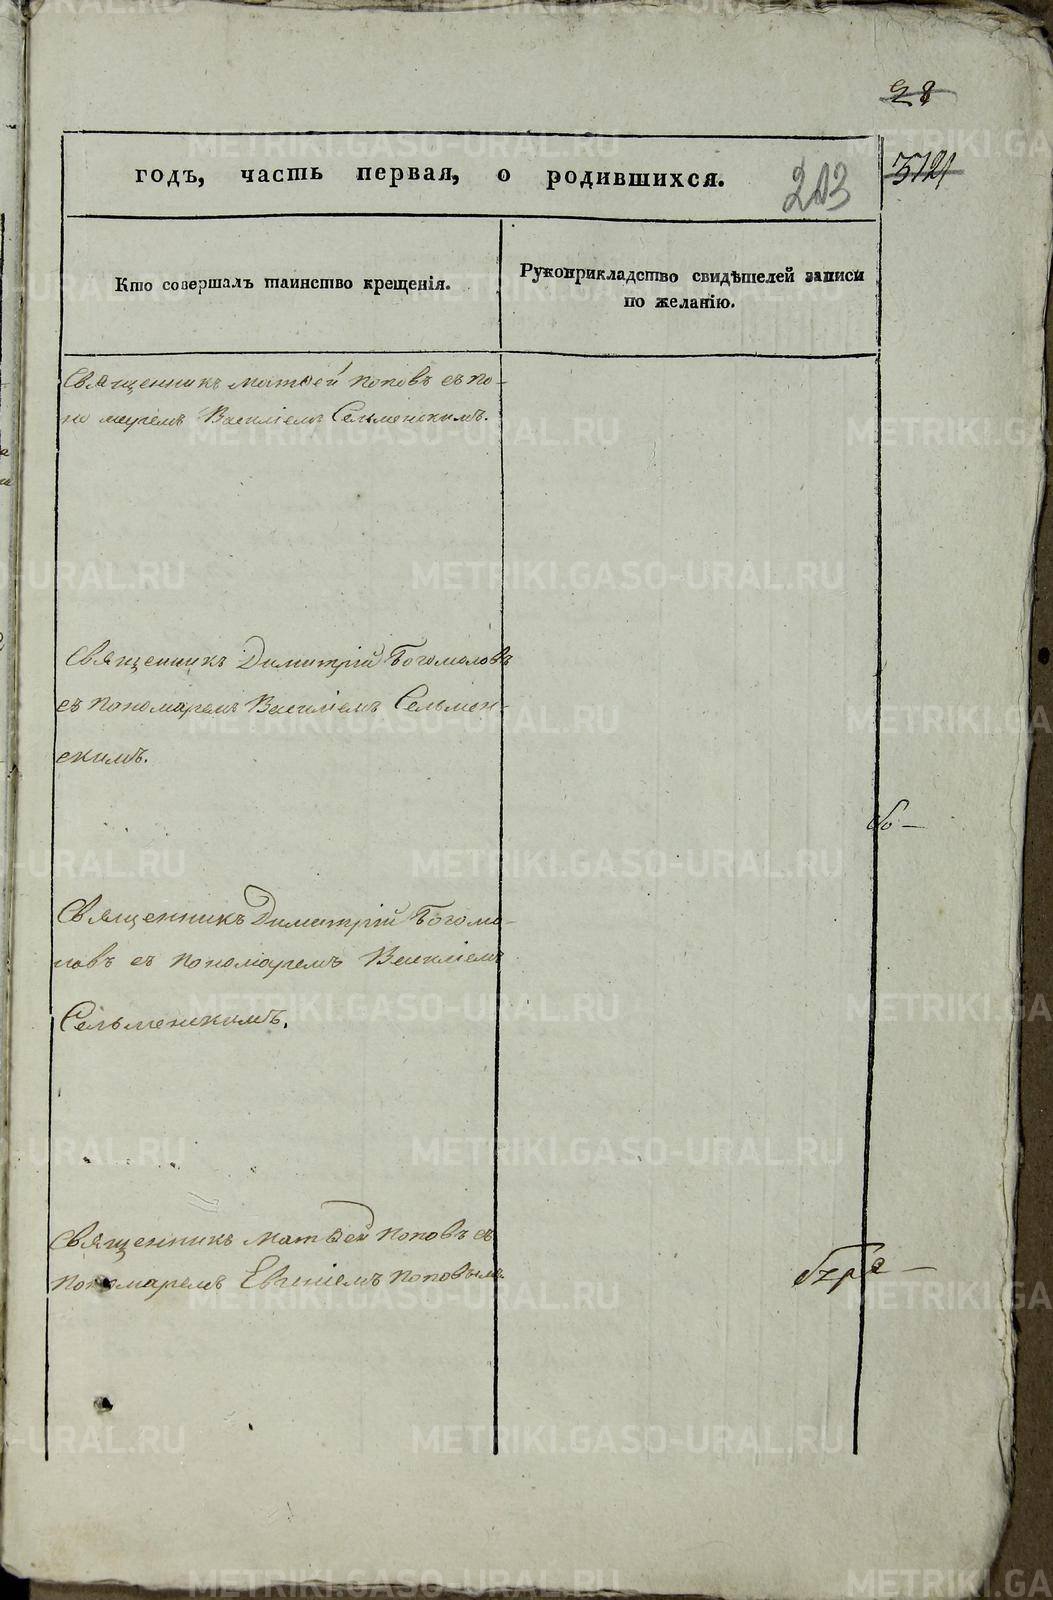 28
годъ, часть первая, о родившихся.
213
3121
Кто совершалъ таинство крещенія.
Рукоприкладство свидѣтелей записи
по желанію.
Священникъ Матѳей Поповъ съ по-
но маремъ Василіемъ Сельменскимъ.
Священникъ Димитрій Богомоловъ
съ пономаремъ Василіемъ Сельмен-
скимъ.
Священникъ Димитрій Богомо-
ловъ съ пономаремъ Василіемъ
Сельменскимъ.
Священникъ Матѳей Поповъ съ
пономаремъ Евгеніемъ Поповымъ.
METRIKI.GASO-URAL.RU